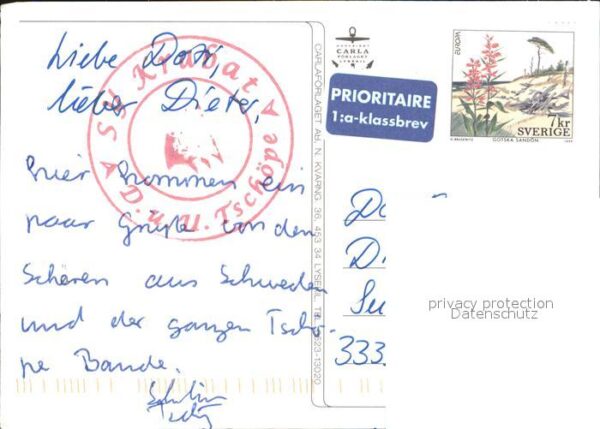 Liebe Dori,
lieber Dieter,
hier kommen ein
paar Grüße von den
Schären aus Schweden
und der ganzen Tschö-
pe Bande.
SY Krabat
D. u. U. Tschöpe
COPYRIGHT
CARLA
FÖRLAGET
LYSEKIL
CARLAFÖRLAGET AB, N. KVARNG. 36, 453 34 LYSEKIL, TEL. 0523-13020
PRIORITAIRE
1:a-klassbrev
EUROPA
7kr
SVERIGE
GOTSKA SANDÖN
D
Su
333
privacy protection
Datenschutz